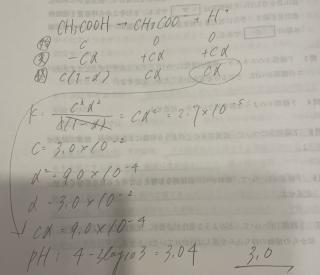 CH₃COOH → CH₃COO⁻ + H⁺
C 0 0
-Cα +Cα +Cα
C(1-α) Cα Cα
K = C²α² / C(1-α) = Cα² = 2.7×10⁻⁵
C = 3.0×10⁻²
α² = 9.0×10⁻⁴
α = 3.0×10⁻²
Cα = 9.0×10⁻⁴
pH: 4-2log₁₀3 = 3.04 3.0